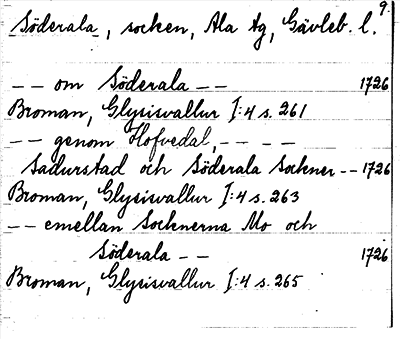 9.
Söderala, socken, Ala tg, Gävleb. l.
-- om Söderala -- 1726
Broman, Glysisvallur I:4 s. 261
-- genom Hofvedal, -- --
Sadurstad och Söderala Sockner -- 1726
Broman, Glysisvallur I:4 s. 263
-- emellan Socknerna Mo och
Söderala -- 1726
Broman, Glysisvallur I:4 s. 265